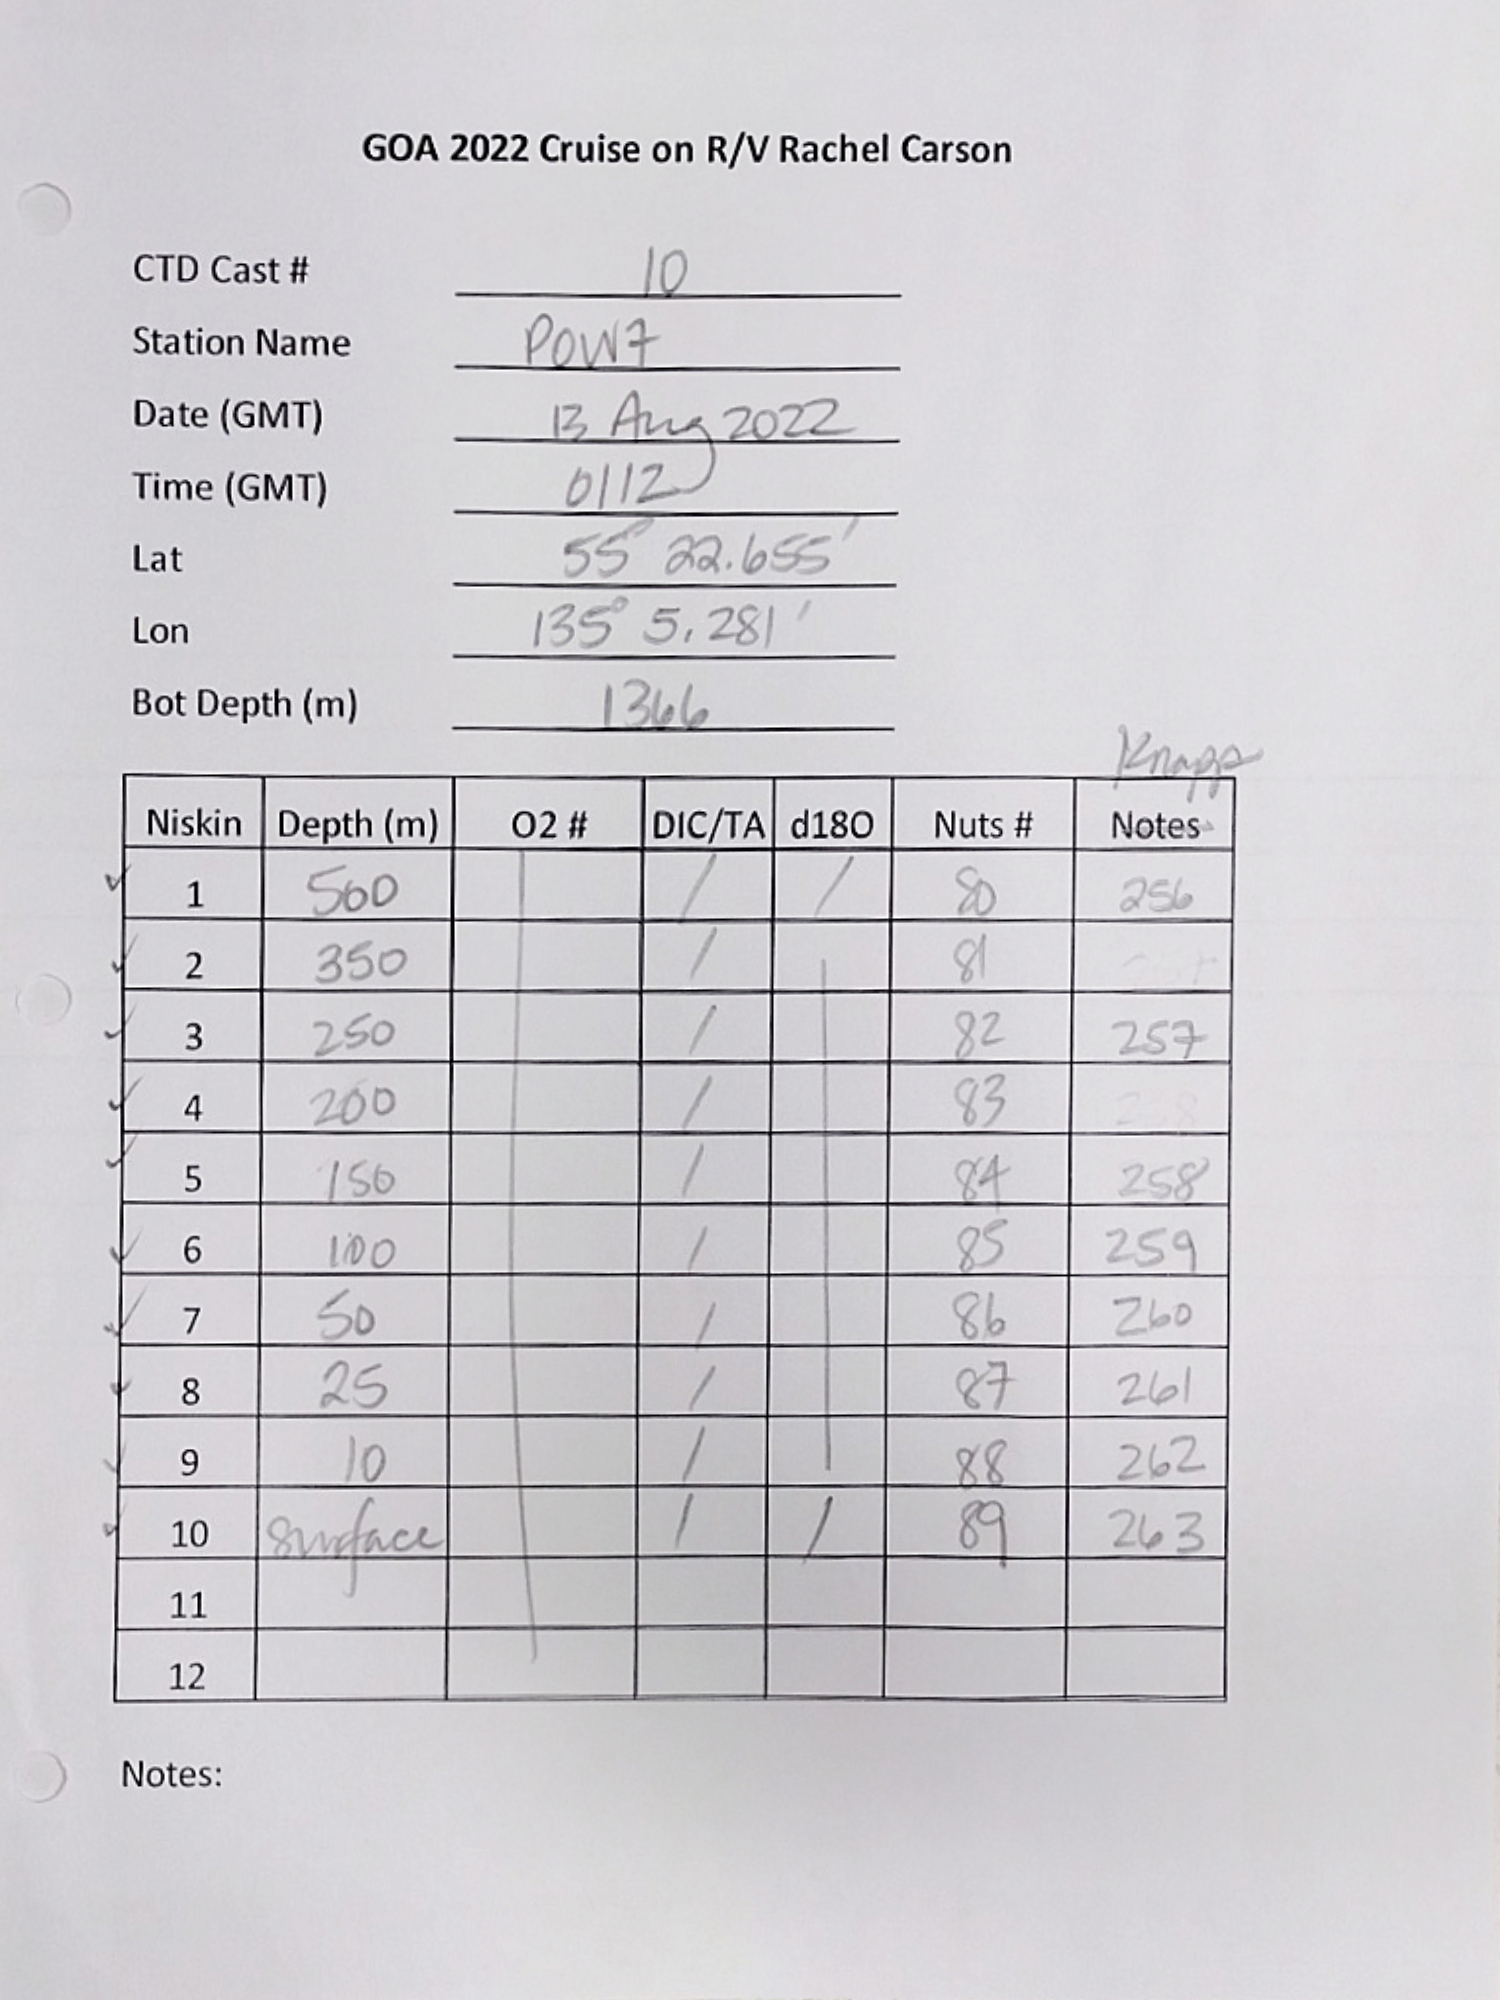 GOA 2022 Cruise on R/V Rachel Carson
CTD Cast # 10
Station Name POW7
Date (GMT) 13 Aug 2022
Time (GMT) 0112
Lat 55° 22.655'
Lon 135° 5.281'
Bot Depth (m) 1366
Knapp
Niskin Depth (m) O2 # DIC/TA d18O Nuts # Notes
✓ 1 500 / / 80 256
✓ 2 350 / 81
✓ 3 250 / 82 257
✓ 4 200 / 83
✓ 5 150 / 84 258
✓ 6 100 / 85 259
✓ 7 50 / 86 260
✓ 8 25 / 87 261
✓ 9 10 / 88 262
✓ 10 surface / / 89 263
11
12
Notes: